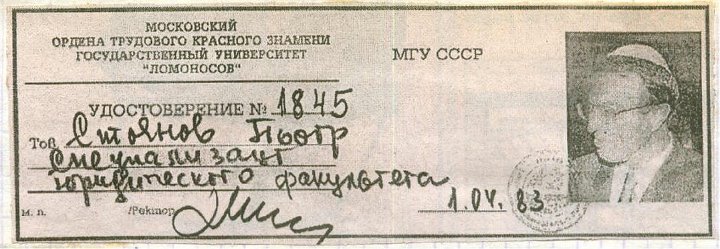 МОСКОВСКИЙ
ОРДЕНА ТРУДОВОГО КРАСНОГО ЗНАМЕНИ
ГОСУДАРСТВЕННЫЙ УНИВЕРСИТЕТ
"ЛОМОНОСОВ"
МГУ СССР
УДОСТОВЕРЕНИЕ № 1845
Тов. Стоянов Пьотр
Специализант
юридического факультета
м. п. /Ректор/ 1.04.83